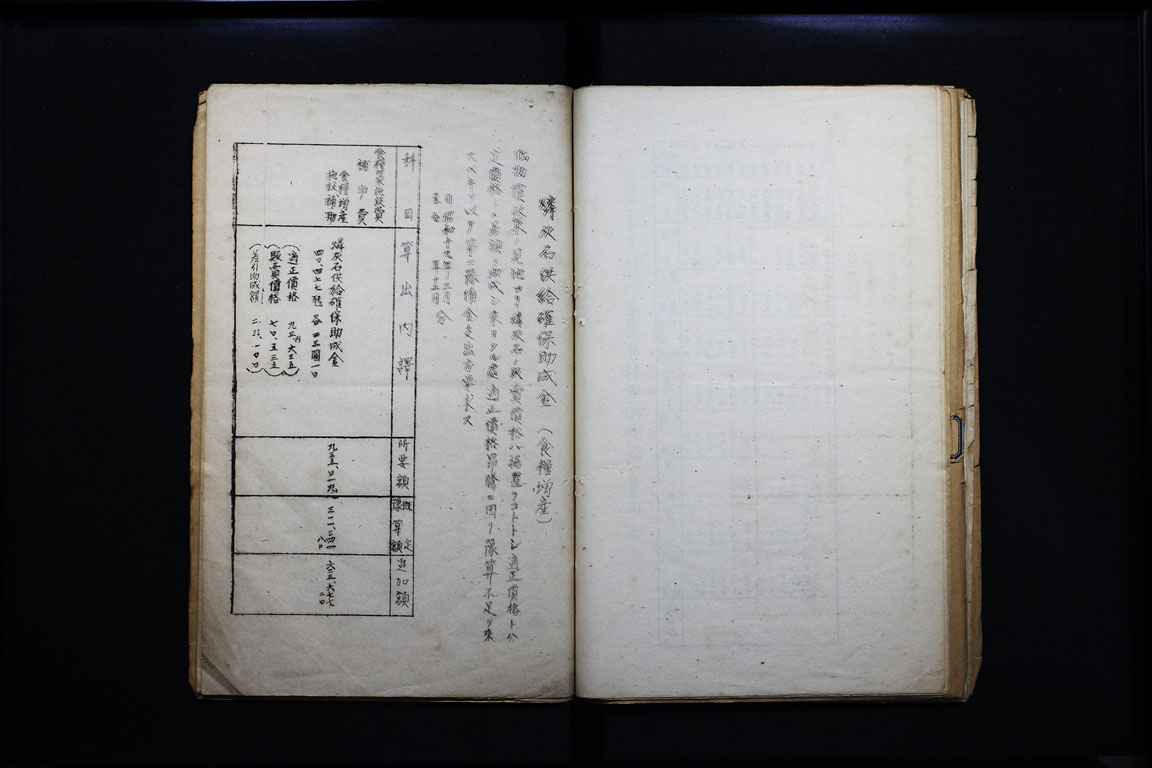 燐灰石供給確保助成金(食糧増産)
低物價政策ノ見地ヨリ燐灰石ノ販賣價格ハ据置クコトトシ適正價格ト公
定價格トノ差額ヲ助成シ來リタル處適正價格昂騰ニ因リ豫算不足ヲ來
スベキヲ以テ第二豫備金支出方要求ス
自昭和十九年十二月
至仝 年十二月 分
科目
算出内譯
所要額
既定豫算額
追加額
食糧對策施設費
補助費
食糧増産
施設補助
燐灰石供給確保助成金
四〇、四七七瓲 各二三圓一〇
(適正價格 九三円六三五)
(販賣價格 七〇、五三五)
(差引助成額 二三、一〇〇)
九三五、〇一九
三一一、三四一
八〇
六二三、六七七
二〇